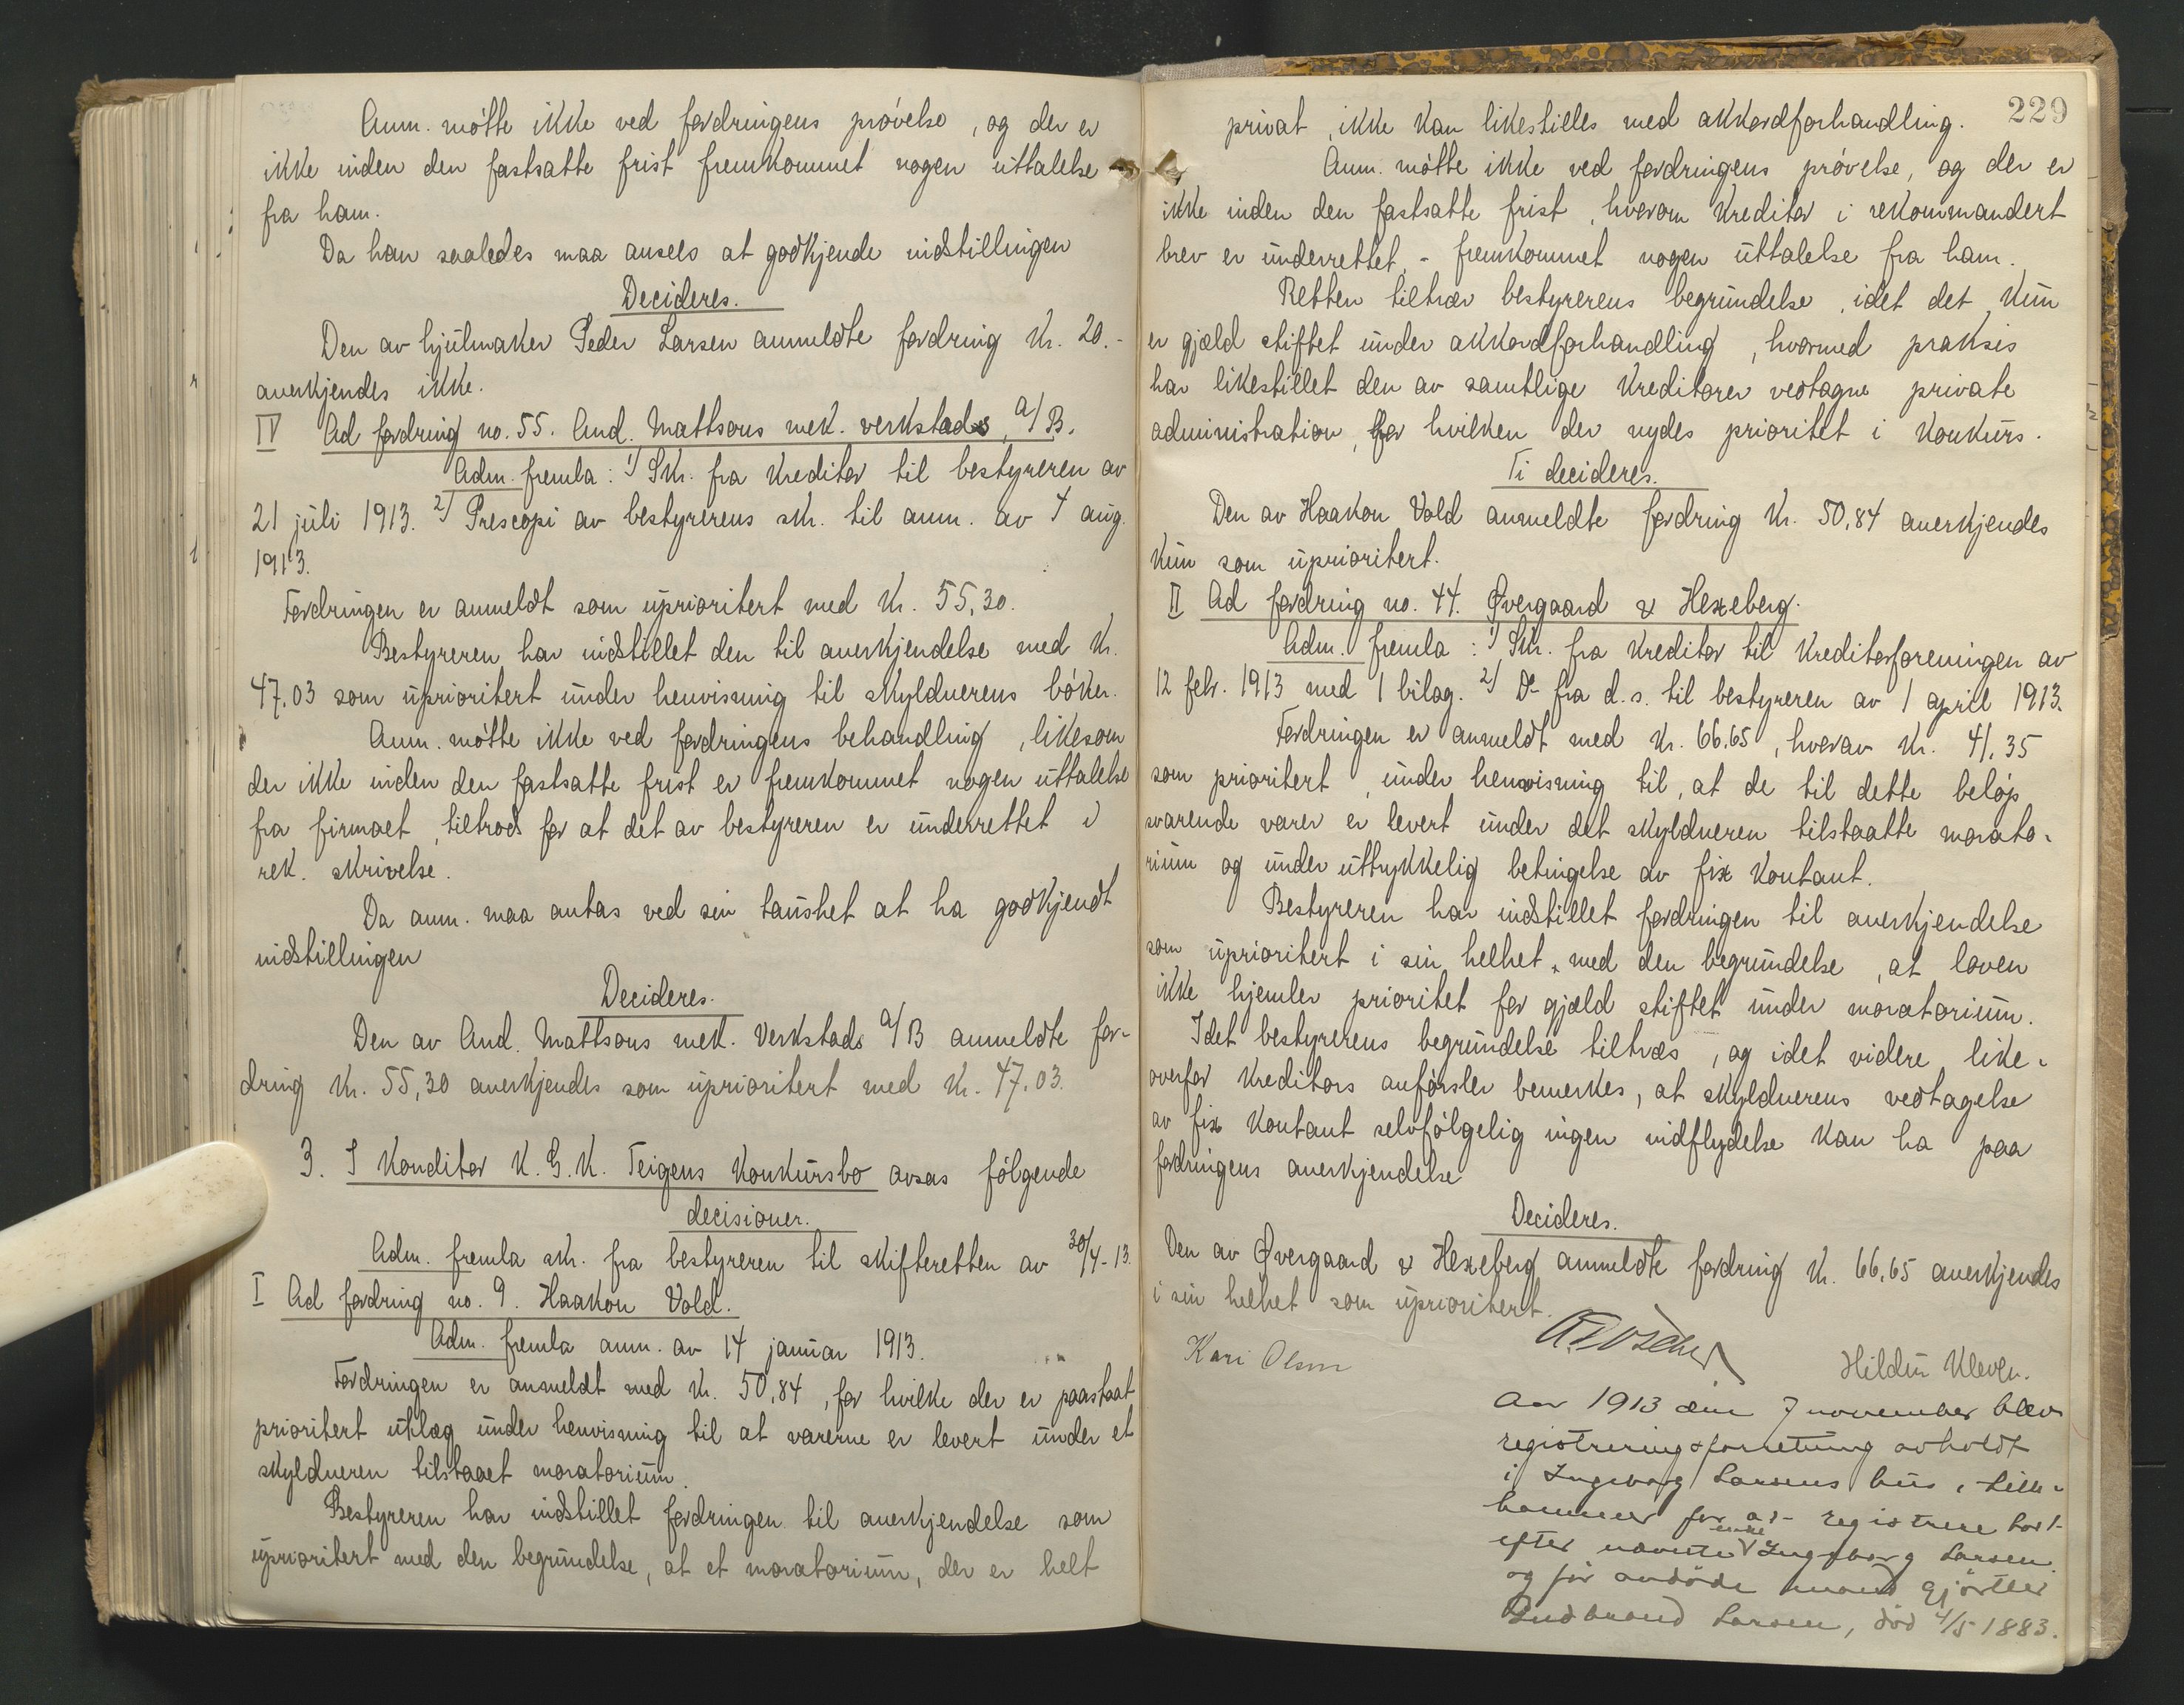 Anm. møtte ikke ved fordringens prøvelse, og der er
ikke inden den fastsatte frist fremkommet nogen uttalelse
fra ham.
Da han saaledes maa ansees at godkjende indstillingen
Decideres.
Den av hjulmaker Peder Larsen anmeldte fordring kr. 20.-
anerkjendes ikke.
IV Ad fordring no. 55. And. Mattsons mek. verkstads, A/B.
Adm. fremla: 1) Skr. fra kreditor til bestyreren av
21 juli 1913. 2) Prescopi av bestyrerens skr. til anm. av 4 aug.
1913.
Fordringen er anmeldt som uprioritert med kr. 55,30.
Bestyreren har indstillet den til anerkjendelse med kr.
47.03 som uprioritert under henvisning til skyldnerens bøker.
Anm. møtte ikke ved fordringens behandling, likesom
der ikke inden den fastsatte frist er fremkommet nogen uttalelse
fra firmaet, tiltrods for at det av bestyreren er underrettet i
rek. skrivelse.
Da anm. maa antas ved sin taushet at ha godkjendt
indstillingen
Decideres.
Den av And. Mattsons mek. Verkstads A/B anmeldte for-
dring kr. 55,30 anerkjendes som uprioritert med kr. 47.03.
3. I Konditor K. G. K. Teigens konkursbo avsas følgende
decisioner.
Adm. fremla skr. fra bestyreren til skifteretten av 30/4-13.
I Ad fordring no. 9. Haakon Vold.
Adm. fremla anm. av 14 januar 1913.
Fordringen er anmeldt med kr. 50,84, for hvilke der er paastaat
prioritert utlæg under henvisning til at varerne er levert under et
skyldneren tilstaaet moratorium.
Bestyreren har indstillet fordringen til anerkjendelse som
uprioritert med den begrundelse, at et moratorium, der er helt
229
privat, ikke kan likestilles med akkordforhandling.
Anm. møtte ikke ved fordringens prøvelse, og der er
ikke inden den fastsatte frist, hvorom kreditor i rekommandert
brev er underrettet, - fremkommet nogen uttalelse fra ham.
Retten tiltrær bestyrerens begrundelse, idet det kun
er gjæld stiftet under akkordforhandling, hvormed praksis
har likestillet den av samtlige kreditorer vedtagne private
administration, for hvilken der nydes prioritet i konkurs.
Ti decideres.
Den av Haakon Vold anmeldte fordring kr. 50,84 anerkjendes
kun som uprioritert.
II Ad fordring no. 44. Øvergaard & Hexeberg.
Adm. fremla: 1) Skr. fra kreditor til kreditorforeningen av
12 febr. 1913 med 1 bilag. 2) Do fra d.s. til bestyreren av 1 april 1913.
Fordringen er anmeldt med kr. 66.65, hvorav kr. 41.35
som prioritert, under henvisning til, at de til dette beløp
svarende varer er levert under det skyldneren tilstaatte morato-
rium og under uttrykkelig betingelse av fix kontant.
Bestyreren har indstillet fordringen til anerkjendelse
som uprioritert i sin helhet, med den begrundelse, at loven
ikke hjemler prioritet for gjæld stiftet under moratorium.
Idet bestyrerens begrundelse tiltræs, og idet videre like-
overfor kreditors anførsler bemerkes, at skyldnerens vedtagelse
av fix kontant selvfølgelig ingen indflydelse kan ha paa
fordringens anerkjendelse
Decideres.
Den av Øvergaard & Hexeberg anmeldte fordring kr. 66,65 anerkjendes
i sin helhet som uprioritert.
Kari Olsen
Hildur Kleven.
Aar 1913 den 7 november blev
registreringsforretning avholdt
i Ingeborg Larsens hus i Lille-
hammer for at registrere boet
efter nævnte enke Ingeborg Larsen
og før avdøde mand gjørtler
Gudbrand Larsen, død 4/5 1883.